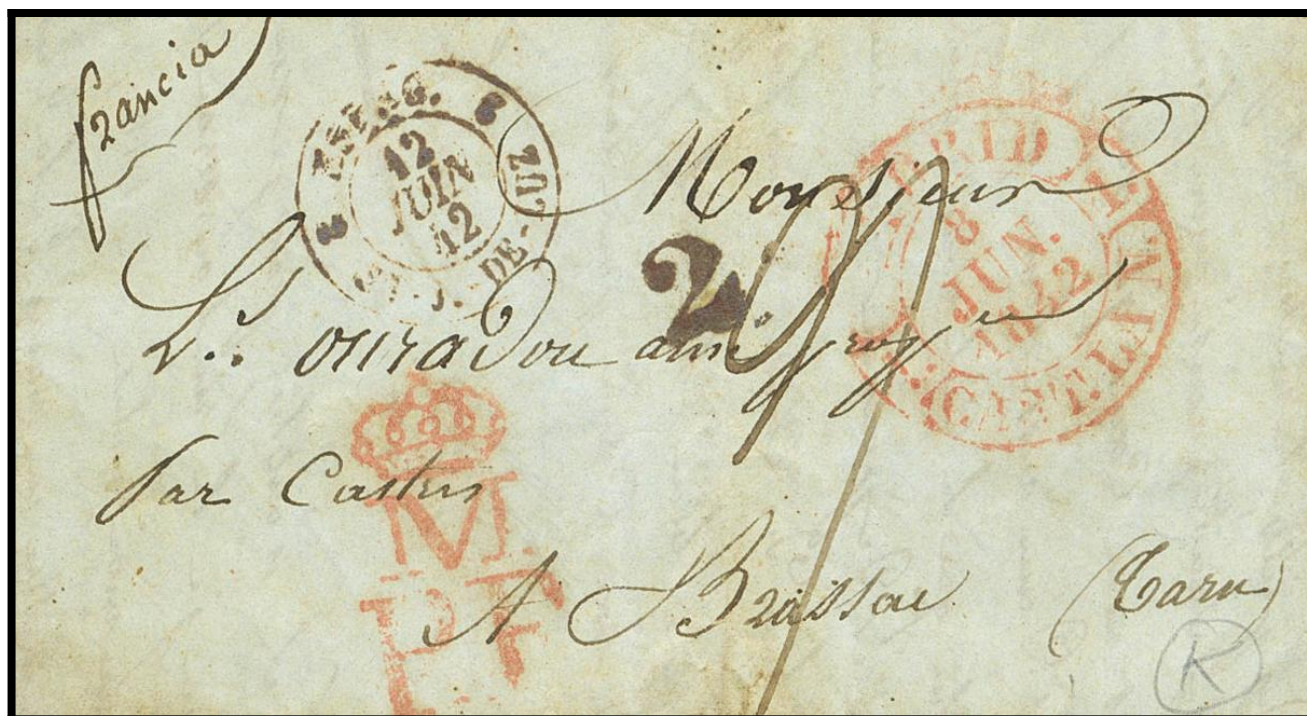 francia
ESPAG.
12
JUIN
42
DE-LUZ
2
MADRID
8
JUN.
1842
CAST. LA N.
Monsieur
Ls. ouradou ainé
par Castres
M
PF
A Brassac (Tarn)
K